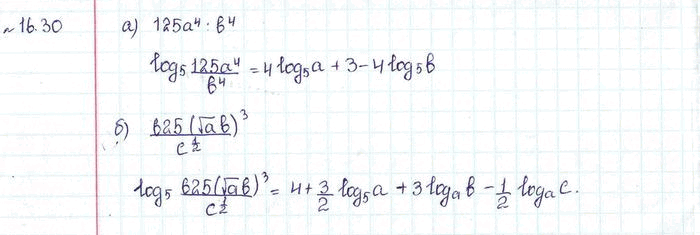 №16.30 а) 125a⁴ : b⁴
log₅ 125a⁴/b⁴ = 4 log₅a + 3 - 4 log₅b
б) 625(√ab)³/c^½
log₅ 625(√ab)³/c^½ = 4 + 3/2 log₅a + 3 logₐb - 1/2 logₐc.